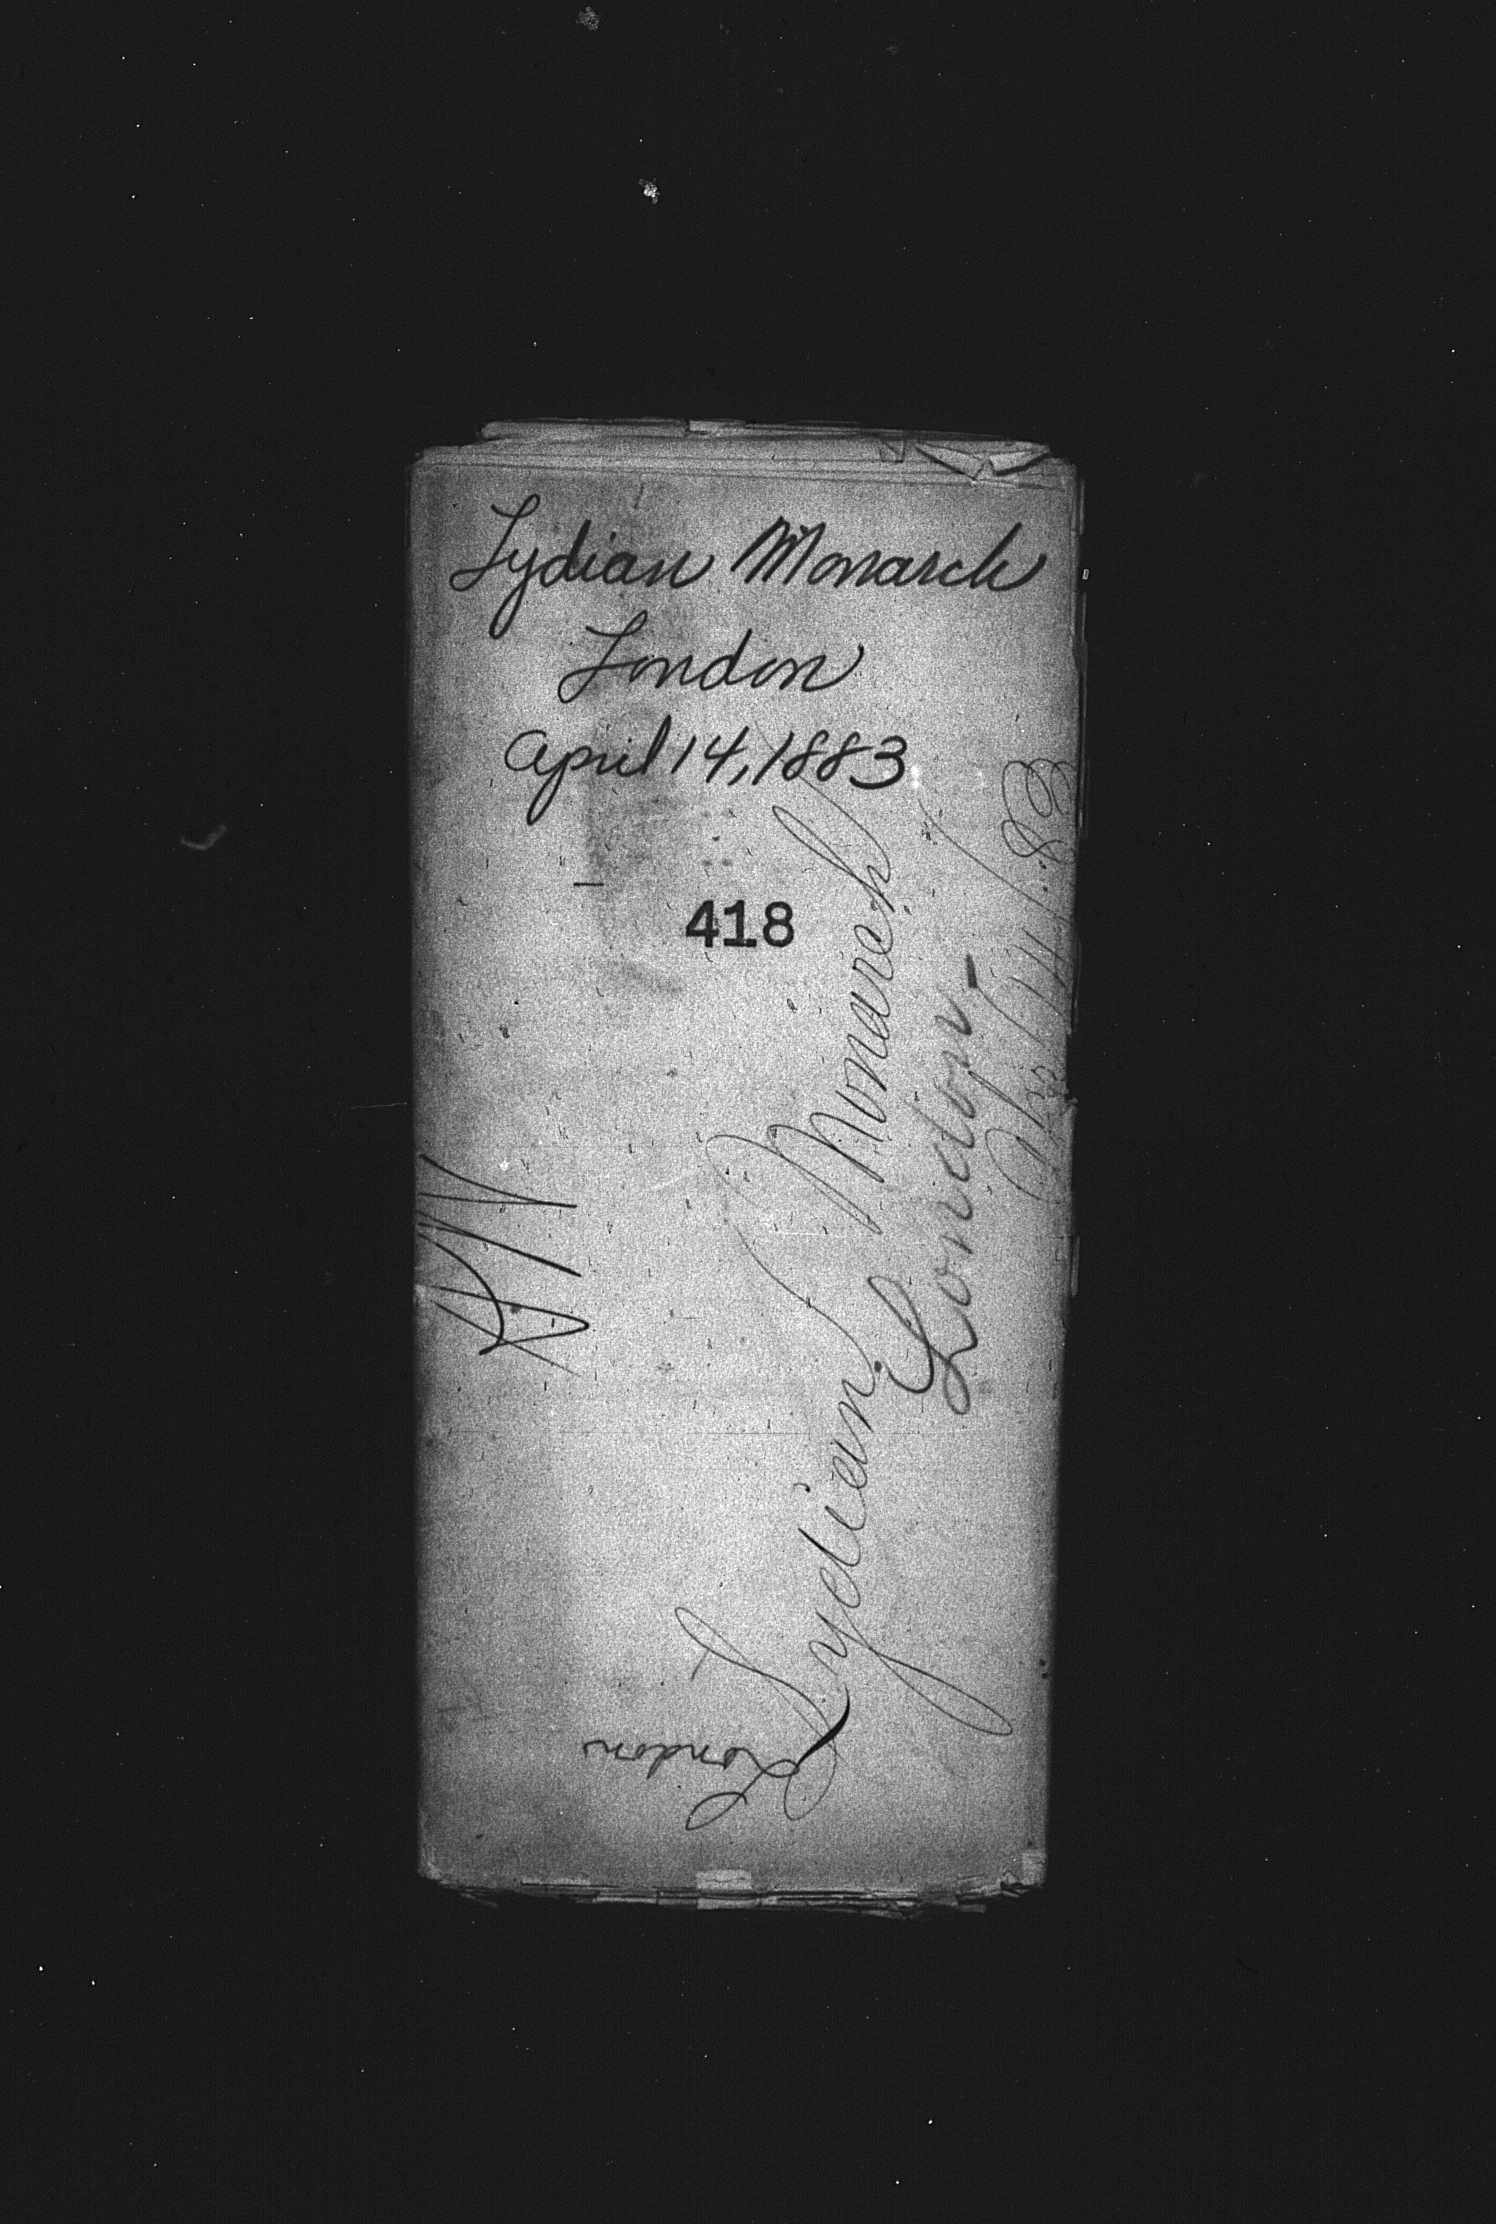 Lydian Monarch
London
April 14, 1883
418
Lydian Monarch
London
14/83
London